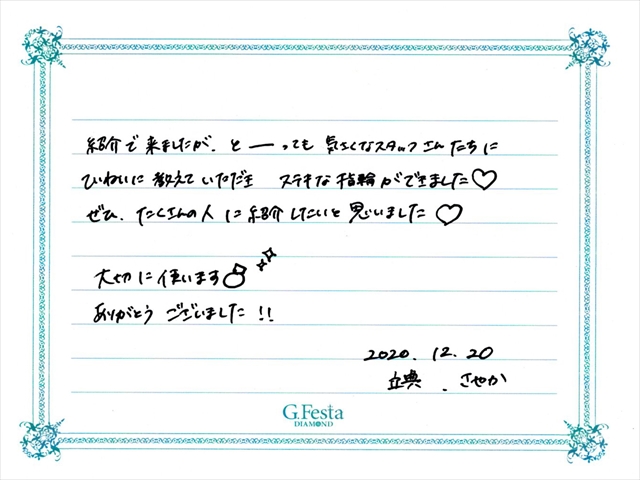 紹介で来ましたが、と――っても 気さくなスタッフさんたちに
ていねいに教えていただき ステキな指輪ができました♡
ぜひ、たくさんの人に紹介したいと思いました♡
大切に使います
ありがとうございました!!
2020. 12. 20
立典 . さやか
G.Festa
DIAMOND